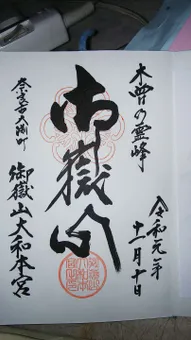 木曽の霊峰
令和元年
十一月十日
御嶽山
奈良市大渕町
御嶽山大和本宮